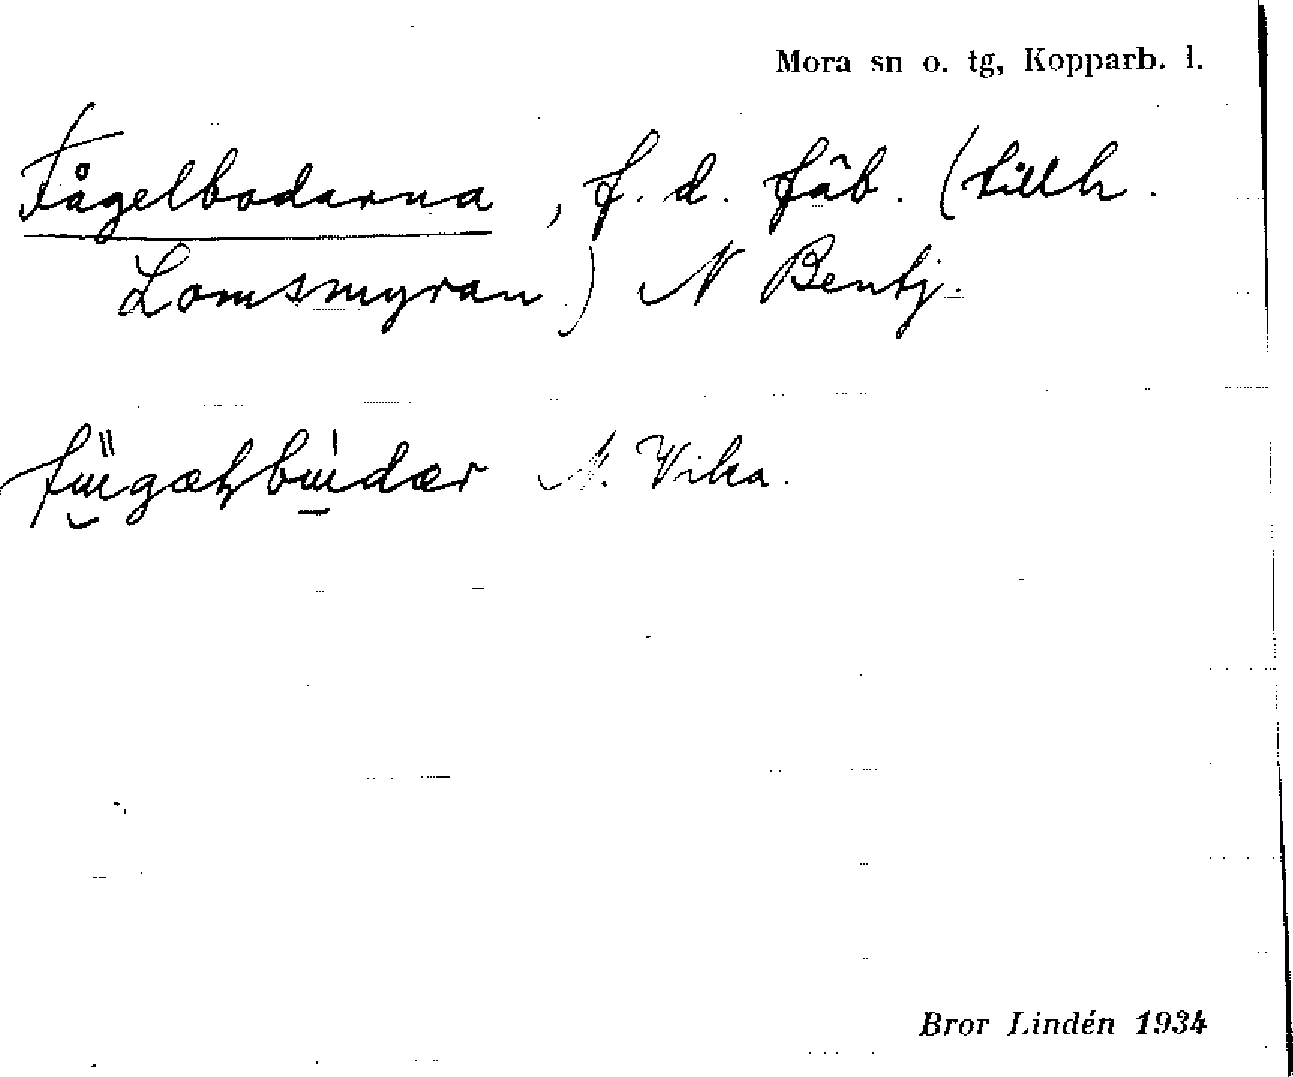 Mora sn o. tg, Kopparb. l.
Fågelbodarna, f. d. fäb. (tillh.
Lomsmyran.) N Bentj.
N. Vika.
Bror Lindén 1934